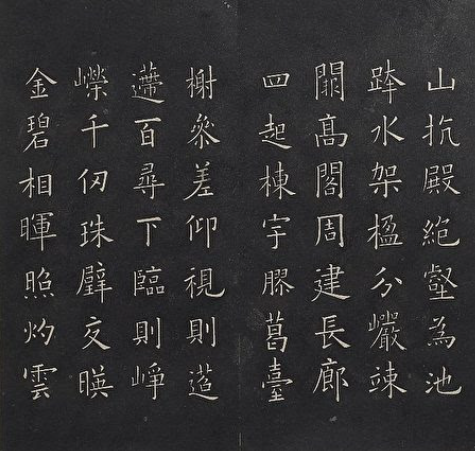 山抗殿絕壑為池
跨水架楹分巖竦
闕高閣周建長廊
四起棟宇膠葛臺
榭參差仰視則迢
遰百尋下臨則崢
嶸千仞珠璧交暎
金碧相暉照灼雲